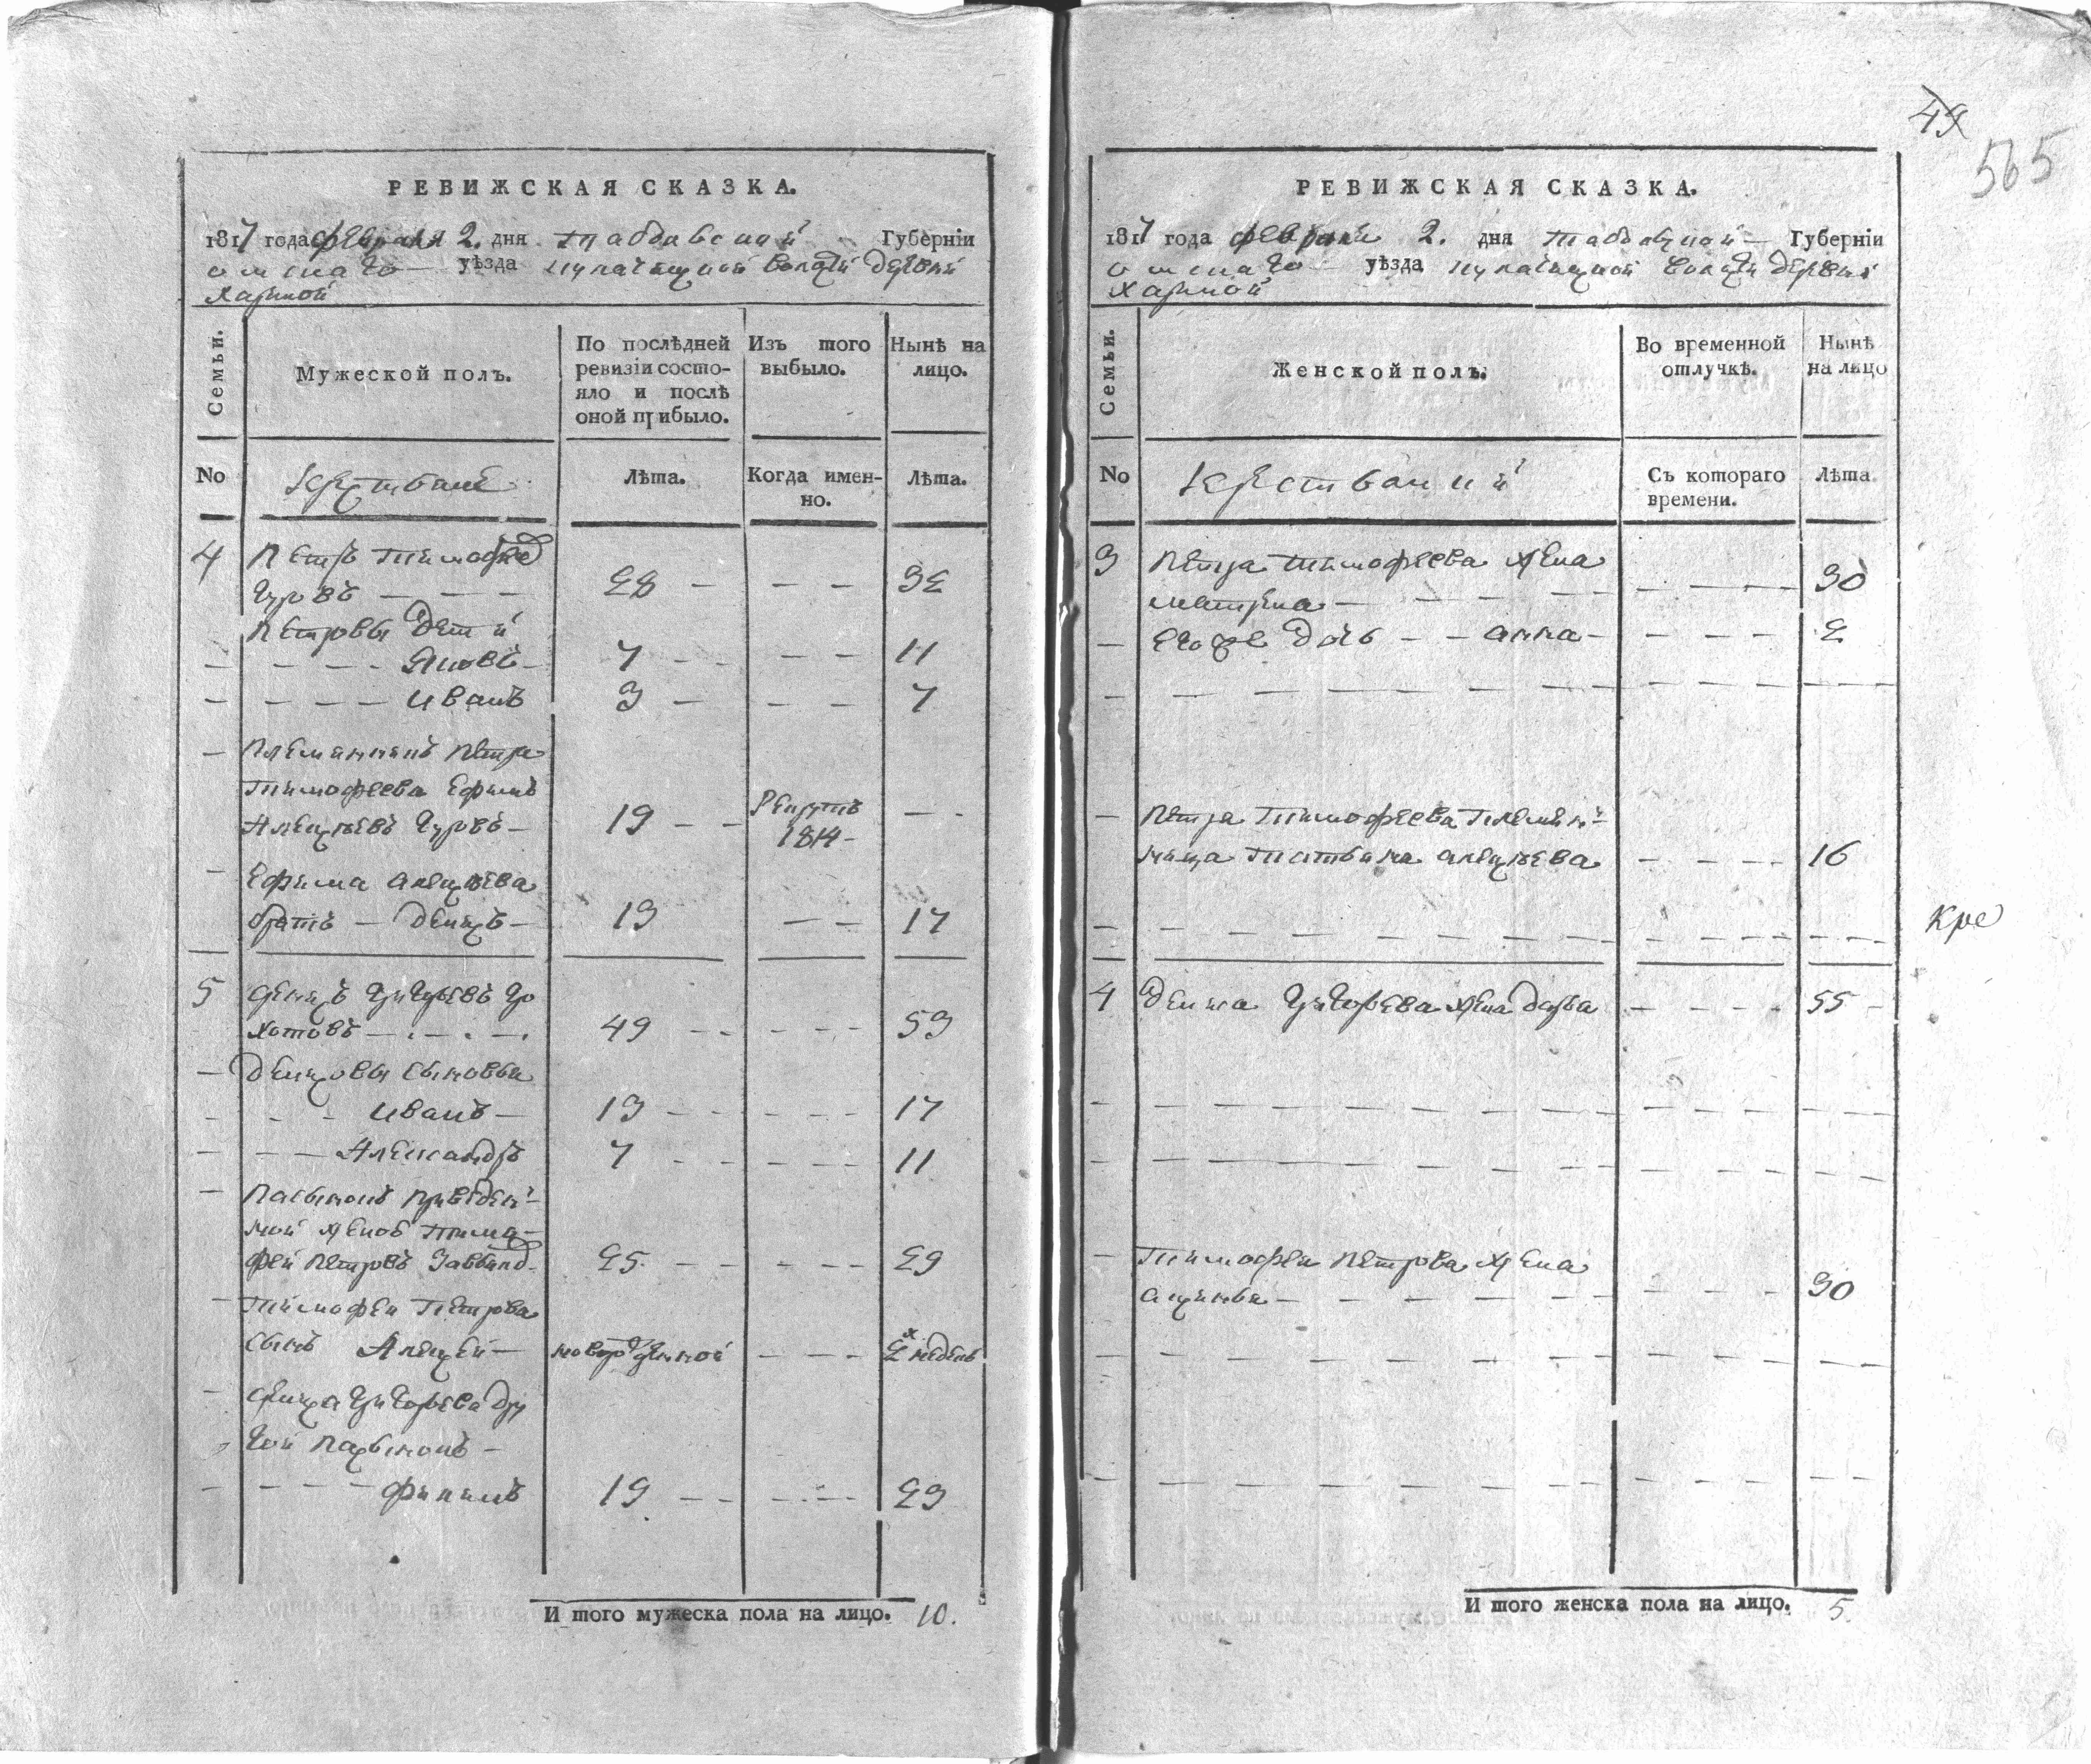 49
565
РЕВИЖСКАЯ СКАЗКА.
1817 года февраля 2. дня тобольской Губерніи
омскаго уѣзда кулачинской волости деревни
Харикой
Семьи.
Мужеской полъ.
По послѣдней ревизіи состо-
яло и послѣ оной прибыло.
Изъ того выбыло.
Нынѣ на лицо.
No
крестьяне
Лѣта.
Когда имен-
но.
Лѣта.
4 Петръ тимофее
Гуровъ — — — 28 — — — 32
Петровы дети
— — — — Яковъ — 7 — — — — 11
— — — — Иванъ 3 — — — 7
— племянникъ петра
тимофеева Ефимъ
Алексеевъ Гуровъ — 19 — — Рекрутъ 1814 — — -
— Ефима алексеева
братъ — денисъ — 13 — — 17
5 денисъ Григорьевъ Го
хотовъ — . — . — . 49 — - — — — 53
— денисовы сыновья
- - - иванъ — 13 — — — — — — 17
— — — Александръ 7 — — — — — 11
— пасынокъ приведен-
ной женой тимо-
фей петровъ 25 — — — — — 29
— тимофея петрова
сынъ Алексей — новорожденной — — — 2 недель
— дениса Григорьева дру
гой пасынокъ —
— — — — филипъ 19 — — — — — 23
И того мужеска пола на лицо. 10.
РЕВИЖСКАЯ СКАЗКА.
1817 года февраля 2. дня тобольской — Губерніи
омскаго уѣзда кулачинской волости деревни
Харикой
Семьи.
Женской полъ.
Во временной отлучкѣ.
Нынѣ на лицо
No
крестьянки
Съ котораго времени.
Лѣта
3 петра тимофеева жена
матрена — — — — — — — — 30
— его же дочь — — анна — — — — — 2
— петра тимофеева племян-
ница татьяна алексеева — — — — 16
Кре
4 дениса Григорьева жена дарья — — — — 55 —
— тимофея петрова жена
аксинья — — — — — — — — — 30
И того женска пола на лицо. 5.